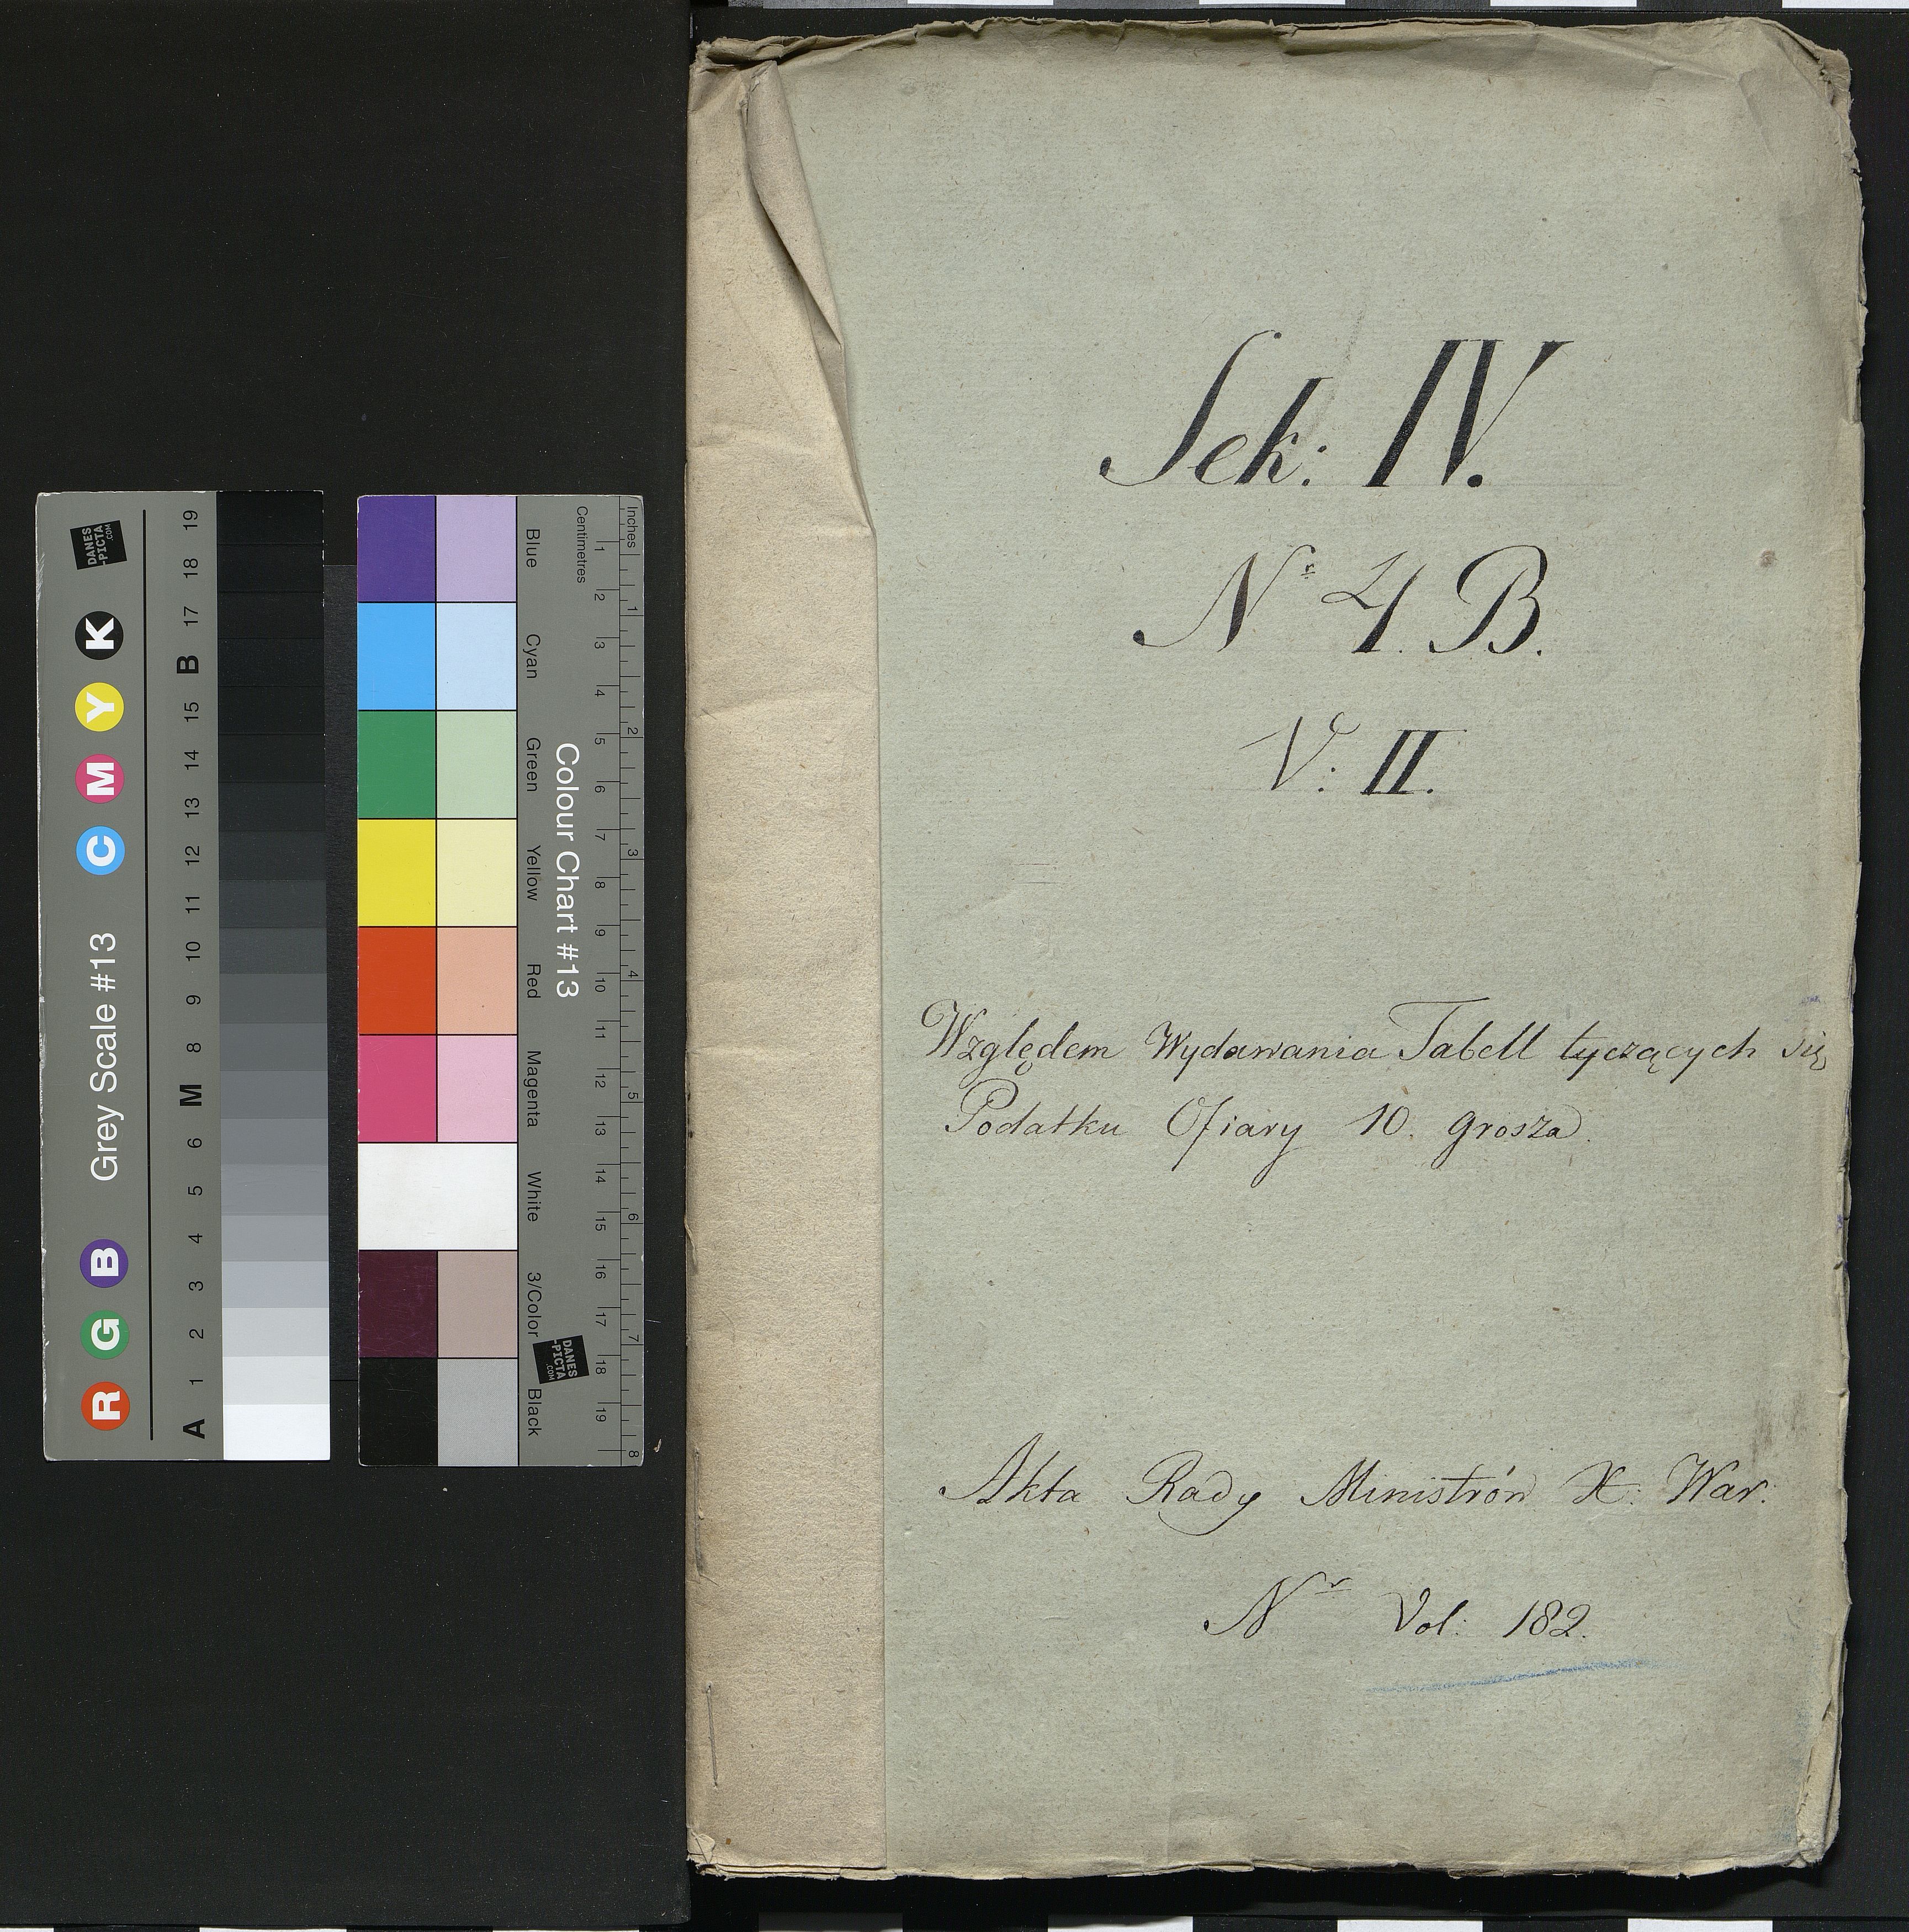 Sek: IV.
Nr 4. B.
V: II.
Względem Wydawania Tabell tyczących się
Podatku Ofiary 10. grosza.
Akta Rady Ministrów X: War:
Nr Vol: 182.
Grey Scale #13
R G B C M Y K
A 1 2 3 4 5 6 M 8 9 10 11 12 13 14 15 B 17 18 19
DANES
-PICTA
.COM
Colour Chart #13
Blue Cyan Green Yellow Red Magenta White 3/Color Black
Centimetres 1 2 3 4 5 6 7 8 9 10 11 12 13 14 15 16 17 18 19
Inches 1 2 3 4 5 6 7 8
DANES
-PICTA
.COM